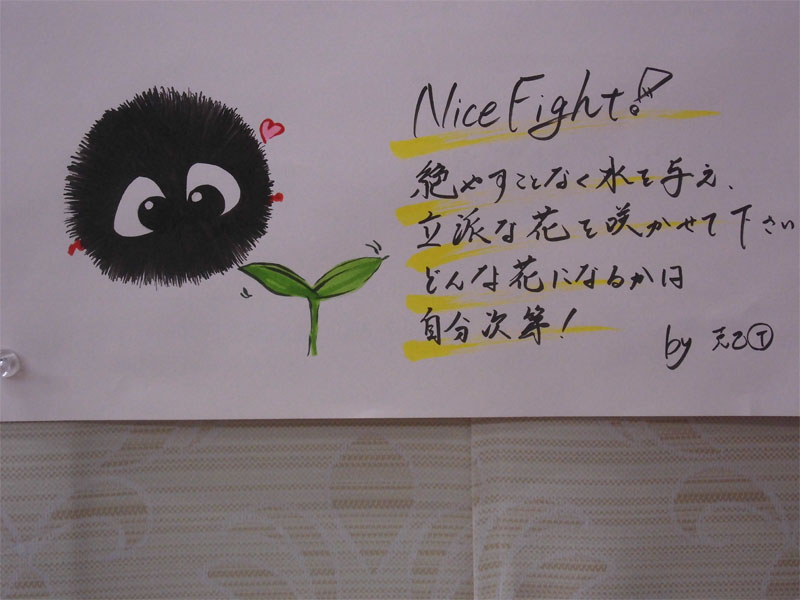 Nice Fight!
絶やすことなく水を与え、
立派な花を咲かせて下さい
どんな花になるかは
自分次第!
by